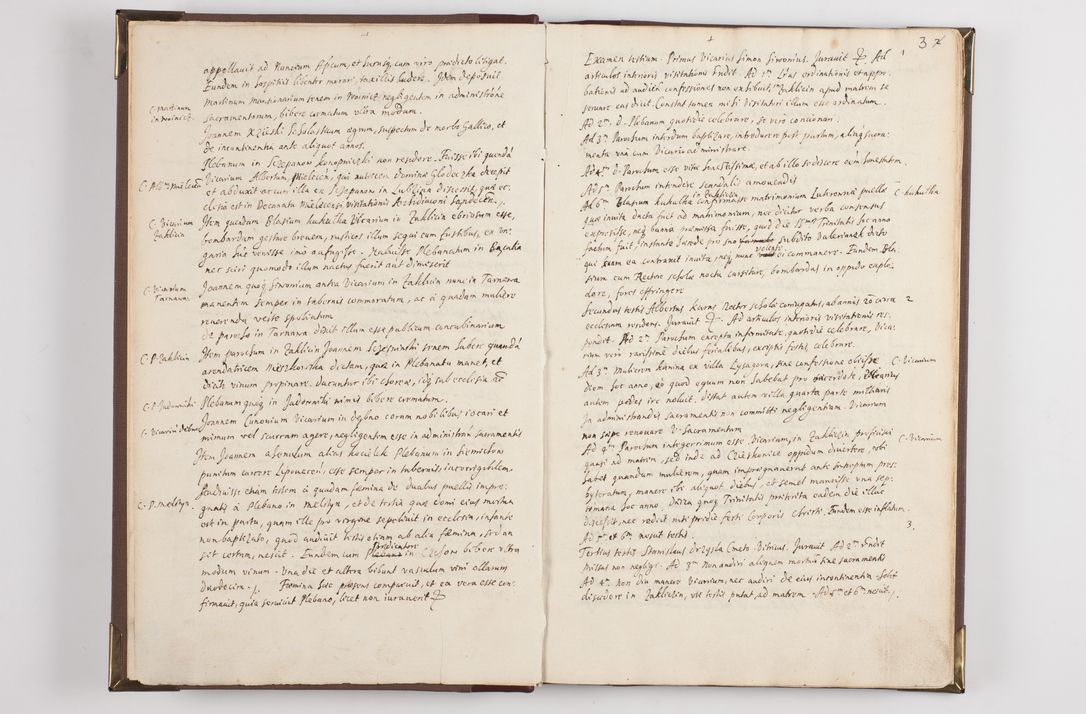 appellauit ad Nuncium Apicum, et Surnby cum viro praedicto litigat.
Eundem in hospitiis libenter morari, taxillis ludere. Item deposuit
C. Martinum
in Woinicz
Martinum Mansionarium Senem in Woinicz negligentem in administrõne
Sacramentorum, bibere crematum vltra modum.
Joannem Scholasticum aegrum, suspectum de morbo Gallico, et
de incontinentia ante aliquot annos.
Plebanum in Sczepanow Konopniczki non residere. Fuisse ibi quendã
C. Alb. Mielecen
Vicarium Albertum, Mielecen, qui nutricem dominae decepit
et abduxit ac cum illa ex Sczepanow in
clesia est in Decanatu Mielecensi visitationis Archidiaconi Sandecen.
C. Vicarium
Zaklicin
Item quendam Blasium Kukulka Vicarium in Zaklicin ebriosum esse,
bombardam gestare breuem, rusticos illum sequi cum fustibus, ex Vn-
garia huc venisse imò aufugisse. Habuisse Plebanatum in
nec sciri quomodo illum nactus fuerit aut dimiserit
C. Vicarium
Tarnaua.
Joannem quoq Simonium antea Vicarium in Zaklicin nunc in Tarnawa
manentem semper in tabernis commoratum, ac à quadam muliere
reuerendu veste spoliatum
de parocho in Tarnawa dixit illum esse publicum concubinarium
C. P. Zaklicin
Item parochum in Zaklicin Joannem senem habere quandã
arendatricem dictam, quae in Plebanatu manet, et
dicitur vinum propinare. Ducuntur ibi choreae, idq sub ecclesia
C. P. Jadowniki
Plebanum quoq in Jadowniki nimis bibere crematum.
C. Vicariũ Debno
Joannem Vicarium in Debno coram nobilibus iocari et
mimum vel scurram agere, negligentem esse in administrãn sacramentis
Item Joannem alias Plebanum in
punitum carcere Lipouecen, esse semper in tabernis incorrigibilem.
Audiuisse etiam testem à quadam faemina de duabus puellis impre-
C. P. Melstyn.
gnatis à Plebano in Melstyn, et de tertia quae domi eius mortua
est in partu, quam ille pro virgine sepeliuit in ecclesia, infante
non baptizato, quod audiuit testis etiam ab alia faemina, sed an
sit certum, nescit. Eundem cum Praedicatore in Czchow bibere vltra
modum vinum. Vna die et altera bibunt vasculum vini ollarum
duodecim. Faemina haec praesens comparuit, et ea vera esse con-
firmauit, quia seruiuit Plebano, licet non iurauerit
37
Examen testium. Primus Vicarius Simon Simonius. Jurauit. Ad
1
articulos interioris visitationis rndit. Ad 1m Lras ordinationis et appro-
bationis ad audien confessiones non exhibuit, Zaklicin apud matrem se
seruare eas dicit. Constat tamen mihi Visitatori illum esse ordinatum.
Ad 2m d. Plebanum quotidie celebrare, Se verò concionari.
Ad 3m Parochum interdum baptizare, introducere post partum, aliaq sacra-
menta unà cum Vicario administrare.
Ad 4m d. Parochum esse vitae honestissimae, et ab illo se discere eam honestatem.
Ad 5m Parochum intendere scandalis amouendis
in Zaklicin
C. Kukulka
Ad 6m Blasium Kukulka confirmasse matrimonium puellae
quae inuita ducta fuit ad matrimonium, nec dicitur verba consensus
expressisse, neq banna praemissa fuisse, quod die Ssmae Trinitatis hoc anno
factum fuit, instante pro suo subdito dicto
volente
qui etiam ea contraxit inuita, neq nunc ei commanere. Eundem Bla-
sium cum Rectore scholae noctu cursitare, bombardas in oppido explo-
dere, fores effringere
2
Secundus testis Albertus Karas Rector scholae coniugatus, ab annis 20 circa
ecclesiam residens. Jurauit. Ad articulos interioris visitationis res-
pondit. Ad 2m Parochum excepta infirmitate, quotidie celebrare, Vica-
rium verò rarissime diebus ferialibus, exceptis festis, celebrare.
C. Vicarium
Ad 3m Mulierem Kanina ex villa Lysagora, sine confessione obiisse
diem hoc anno, eò quod equum non habebat pro sacerdote, Vicarius
autem pedes ire noluit. Distat autem villa quarta parte milliaris
In administrandis sacramentis non committi negligentiam. Vicarium
non saepe renouare V. Sacramentum
C. Vicarium
Ad 4m Parochum integerrimum esse Vicarium, in Zaklicin proficisci
quasi ad matrem, sed inde ad Czieskowice oppidum diuertere, vbi
habet quandam mulierem, quam impregnauerat ante susceptum pres-
byteratum, manere ibi aliquot diebus, et semel mansisse vna sep-
timana hoc anno, Dnica quoq Trinitatis praeterita eadem die illuc
discessit, nec rediit nisi pridie festi Corporis Christi. Eundem esse inflatum.
Ad 5m et 6m nescit testis
3.
Tertius testis Stanislaus Drzyzla Cmeto Bitneus. Jurauit. Ad 2m rndit
Missas non negligi. Ad 3m Non audiri aliquem mortuũ sine sacramentis
Ad 4m Non diu manere Vicarium, nec audiri de eius incontinentia. Solet
discedere in Zaklicin, vti testis putat, ad matrem. Ad 5m et 6m nescit.